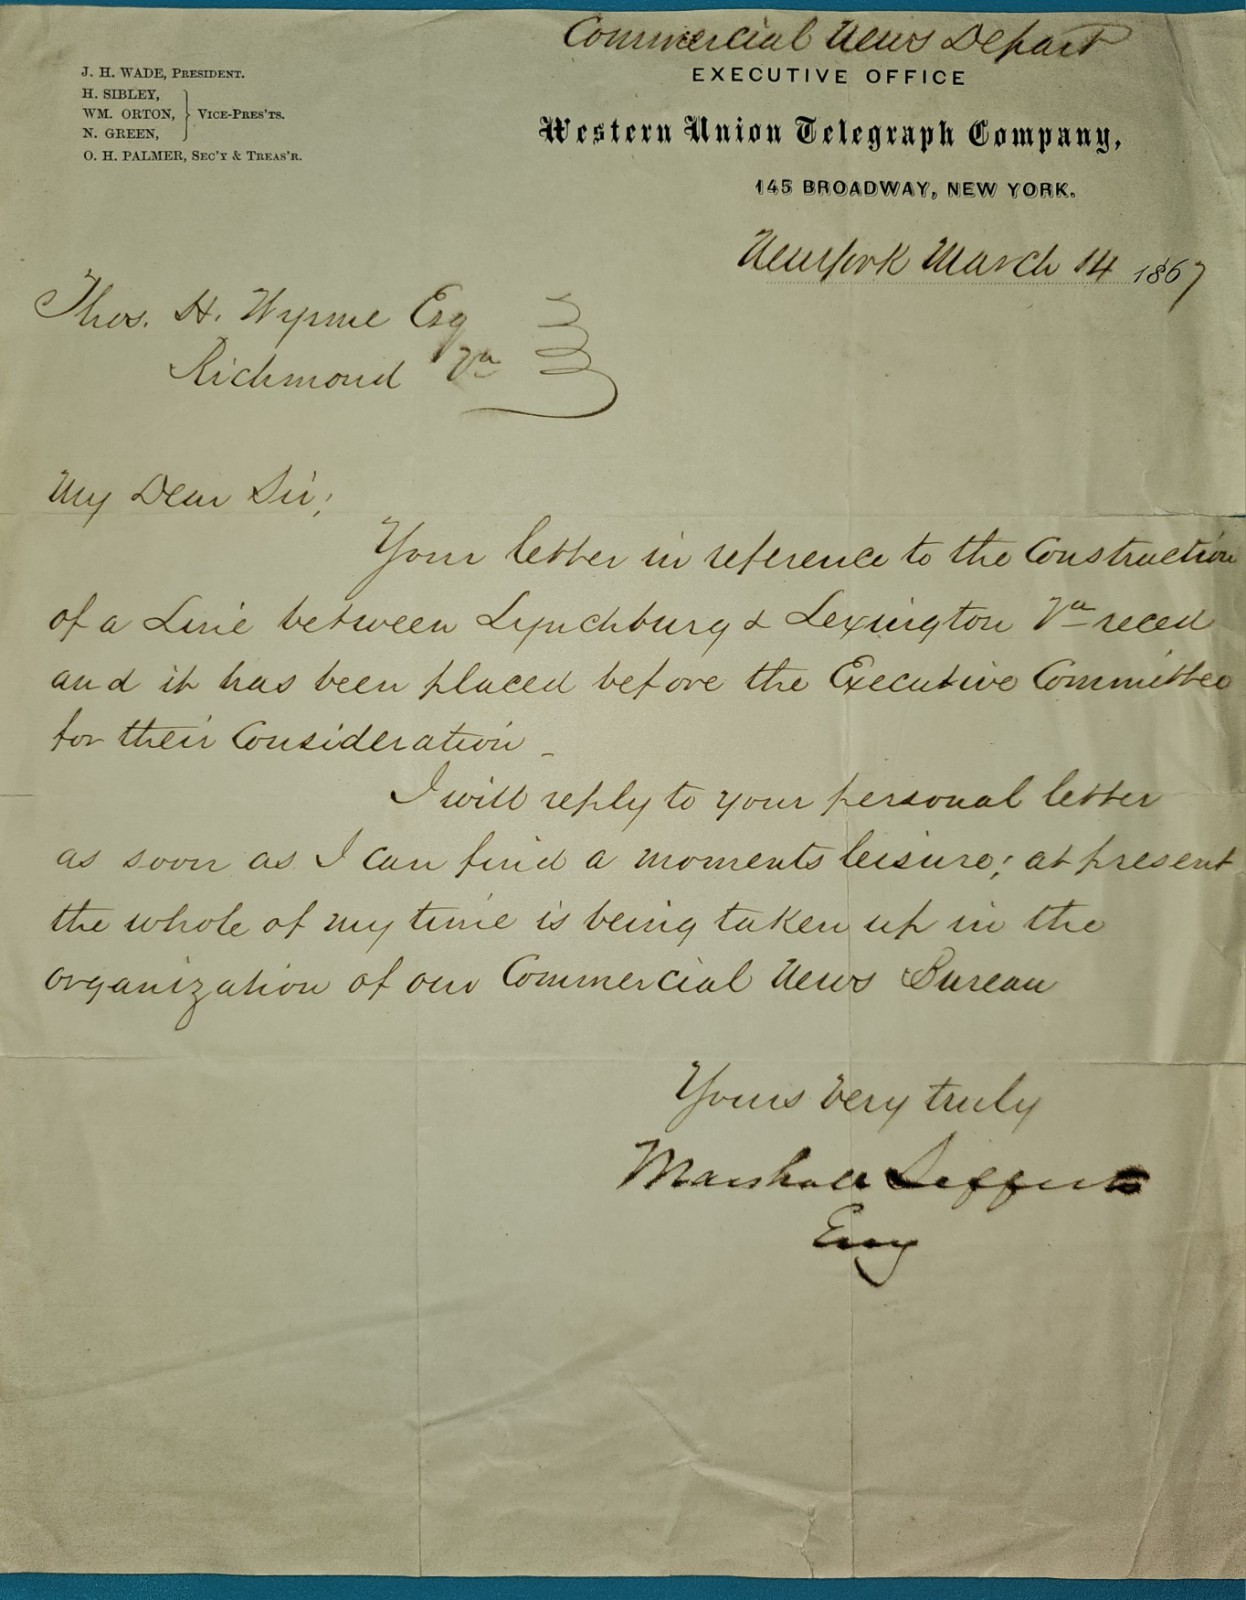 Commercial News Depart
EXECUTIVE OFFICE
Western Union Telegraph Company,
145 BROADWAY, NEW YORK.
J. H. WADE, PRESIDENT.
H. SIBLEY,
WM. ORTON, } VICE-PRES'TS.
N. GREEN,
O. H. PALMER, SEC'Y & TREAS'R.
New York March 14 1867
Thos. H. Wynne Esq
Richmond Va
My Dear Sir;
Your letter in reference to the Construction
of a Line between Lynchburg & Lexington Va reced
and it has been placed before the Executive Committee
for their Consideration _
I will reply to your personal letter
as soon as I can find a moments leisure; at present
the whole of my time is being taken up in the
organization of our Commercial News Bureau
Yours very truly
Marshall Lefferts
Eng